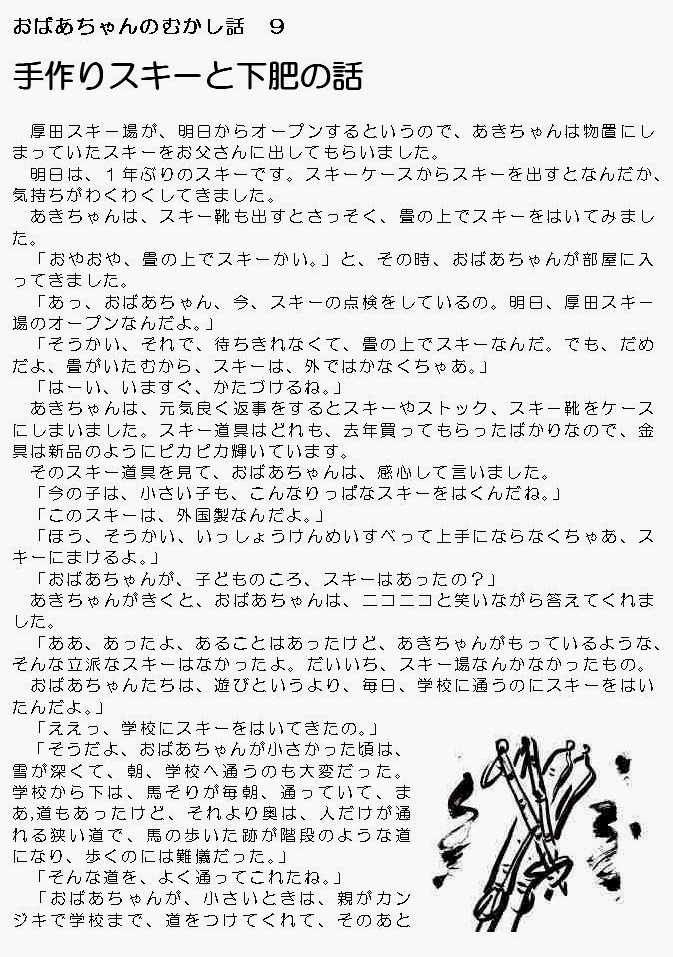 おばあちゃんのむかし話　９
手作りスキーと下肥の話
　厚田スキー場が、明日からオープンするというので、あきちゃんは物置にし
まっていたスキーをお父さんに出してもらいました。
　明日は、１年ぶりのスキーです。スキーケースからスキーを出すとなんだか、
気持ちがわくわくしてきました。
　あきちゃんは、スキー靴も出すとさっそく、畳の上でスキーをはいてみまし
た。
　「おやおや、畳の上でスキーかい。」と、その時、おばあちゃんが部屋に入
ってきました。
　「あっ、おばあちゃん、今、スキーの点検をしているの。明日、厚田スキー
場のオープンなんだよ。」
　「そうかい、それで、待ちきれなくて、畳の上でスキーなんだ。でも、だめ
だよ、畳がいたむから、スキーは、外ではかなくちゃあ。」
　「はーい、いますぐ、かたづけるね。」
　あきちゃんは、元気良く返事をするとスキーやストック、スキー靴をケース
にしまいました。スキー道具はどれも、去年買ってもらったばかりなので、金
具は新品のようにピカピカ輝いています。
　そのスキー道具を見て、おばあちゃんは、感心して言いました。
　「今の子は、小さい子も、こんなりっぱなスキーをはくんだね。」
　「このスキーは、外国製なんだよ。」
　「ほう、そうかい、いっしょうけんめいすべって上手にならなくちゃあ、ス
キーにまけるよ。」
　「おばあちゃんが、子どものころ、スキーはあったの？」
　あきちゃんがきくと、おばあちゃんは、ニコニコと笑いながら答えてくれま
した。
　「ああ、あったよ、あることはあったけど、あきちゃんがもっているような、
そんな立派なスキーはなかったよ。だいいち、スキー場なんかなかったもの。
　おばあちゃんたちは、遊びというより、毎日、学校に通うのにスキーをはい
たんだよ。」
　「ええっ、学校にスキーをはいてきたの。」
　「そうだよ、おばあちゃんが小さかった頃は、
雪が深くて、朝、学校へ通うのも大変だった。
学校から下は、馬そりが毎朝、通っていて、ま
あ,道もあったけど、それより奥は、人だけが通
れる狭い道で、馬の歩いた跡が階段のような道
になり、歩くのには難儀だった。」
　「そんな道を、よく通ってこれたね。」
　「おばあちゃんが、小さいときは、親がカン
ジキで学校まで、道をつけてくれて、そのあと